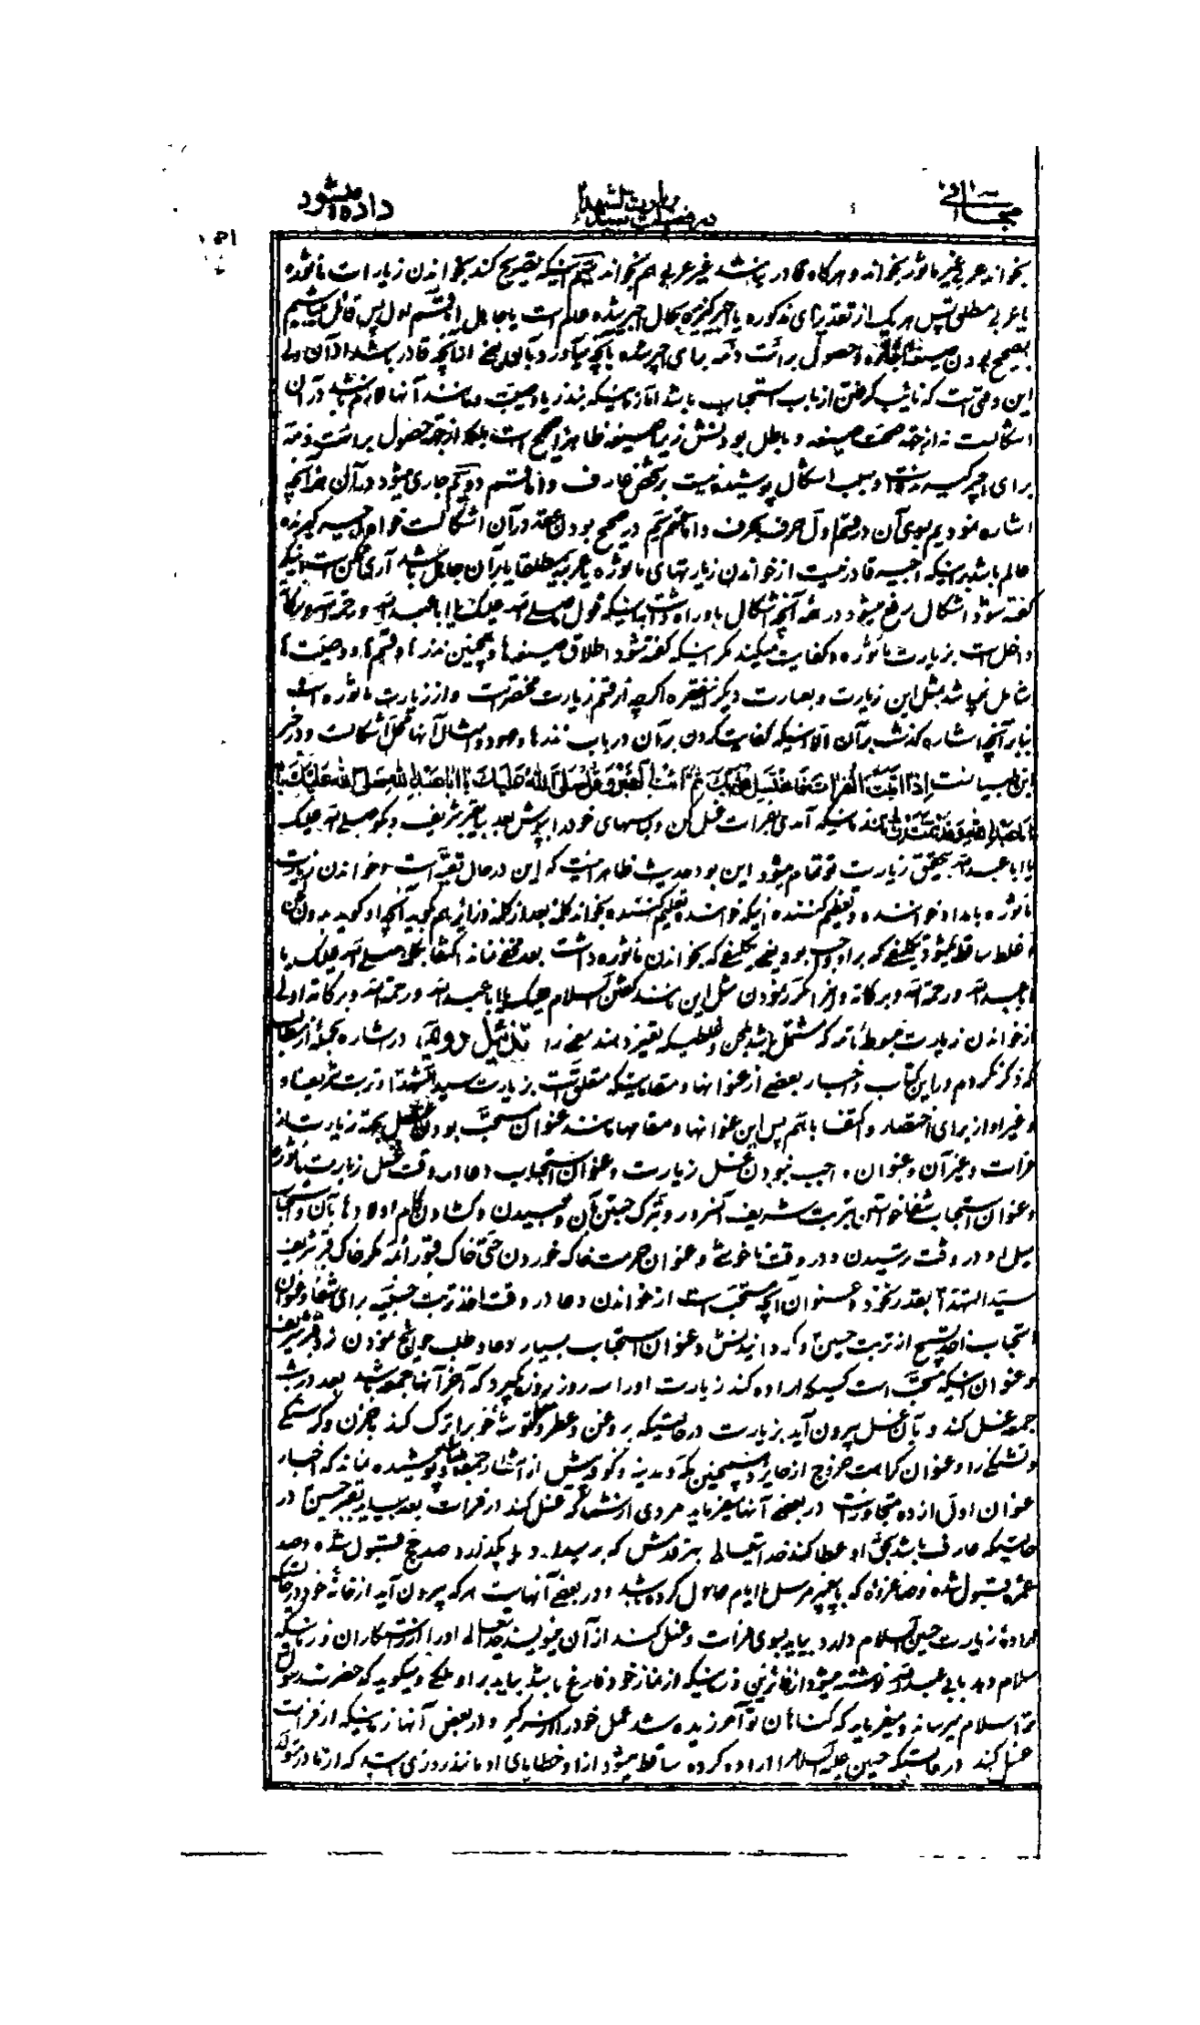 داده میشود
۱۵۱
بخواند عربی غیر مأثور بخواند و هرگاه قادر نباشد غیر عربی هم بخواند اینکه تصریح کند بخواندن زیارات مأثوره
یا عربی مطلق پس هر یک از تقدیرهای مذکوره یا اجیر گیرنده بحال اجیر شده عالم است یا جاهل قسم اول پس قائل میشیم
بصحیح بودن صیغه اجاره و حصول برائت ذمه برای اجیر شده بآنچه بیاورد از آنچه قادر باشد
این وقتی است که نایب گرفتن از باب استحباب باشد اما زمانیکه بنذر یا وصیت و مانند آنها لازم باشد در آن
اشکالست نه از جهة صحت صیغه و باطل بودنش زیرا صیغه ظاهرا صحیح است بلکه از جهة حصول برائت ذمه
برای اجیر گیرنده و سبب اشکال پوشیده نیست بر شخص عارف و اما قسم دویم جاری میشود در آن هر آنچه
اشاره نمودیم بسوی آن در قسم اول حرف بحرف و اما قسم سیم در صحیح بودن عقد در آن اشکالست خواه اجیر گیرنده
عالم باشد براینکه اجیر قادر نیست از خواندن زیارتهای مأثوره یا عربیه مطلقا یا بر آن جاهل باشد آری ممکن است اینکه
گفته شود اشکال رفع میشود در همه آنچه اشکال باو راه داشت باینکه قول صلی الله علیک یا ابا عبد الله و رحمة الله و برکاته
داخل است بزیارت مأثوره و کفایت میکند مگر اینکه گفته شود اطلاق صیغه‌ها و همچنین نذرها و قسم‌ها و وصیت‌ها
شامل نمیباشد بمثل این زیارت و بعبارت دیگر اینفقره اگرچه از قسم زیارت مختصر است و از زیارت مأثوره است
بنابر آنچه اشاره گذشت بر آن الا اینکه کفایت کردن بر آن در باب نذرها و عهود و امثال آنها محل اشکالست و در خبر
إذا أتیت الفرات فاغتسل ثم وقل صلى الله عليك يا أبا عبد الله صلى الله عليك يا
أبا عبد الله یعنی زمانیکه آمدی بفرات غسل کن و لباسهای خود را بپوش بعد بیا بقبر شریف و بگو صلی الله علیک
یا ابا عبد الله بتحقیق زیارت تو تمام میشود این بود حدیث ظاهر اینست که این در حال تقیه است و خواندن زیارت
مأثوره بامداد خواننده و تعلیم کننده اینکه خواننده و تعلیم کننده بخواند کلمه بعد از کلمه و زائر هم گوید آنچه او گوید بدون
غلط ساقط میشود تکلیفی که بر او واجب بود یعنی تکلیفی که بخواندن مأثوره داشت بعد مخفی نماند اکتفا بکلمه صلی الله علیک یا
ابا عبد الله و رحمة الله و برکاته و مکرر نمودن مثل این مانند گفتن السلام علیک یا ابا عبد الله و رحمة الله و برکاته اولی
از خواندن زیارت مبسوطه تامه که مشتمل باشد بلحن و غلطیکه تغییر دهنده معنی را در اشاره بجمله از مطالب
که ذکر نکردم در این کتاب و اخبار بعضی از عنوانها و مقاماتیکه متعلق است بزیارت سید الشهدا و تربت شریفه او
و غیر او از برای اختصار و اکتفا باهم پس این عنوانها و مقامها مانند عنوان مستحب بودن غسل بجهة زیارت از
فرات و غیر آن و عنوان واجب نبودن غسل زیارت و عنوان استحباب دعا در وقت غسل زیارت مأثوره
و عنوان استحباب شفا خواستن بتربت شریف آنسرور و تبرک جستن بآن و بوسیدن و گشادن کام اولادها بآن و استحباب
میل او در وقت ترسیدن و در وقت ناخوشی و عنوان حرمت خاک خوردن حتی خاک قبور ائمه مگر خاک قبر شریف
سید الشهدا بقدر نخود و عنوان آنچه مستحب است از خواندن دعا در وقت اخذ تربت حسینیه برای شفا و عنوان
استحباب اخذ تسبیح از تربت حسین و گردانیدنش و عنوان استحباب بسیار دعا و طلب حوائج نمودن نزد قبر شریف
و عنوان اینکه مستحب است کسیکه اراده کند زیارت او را سه روز روزه بگیرد که آخر آنها جمعه باشد بعد در شب
جمعه غسل کند و بآن غسل بیرون آید بزیارت در حالتیکه بروغن و عطر و گوشت خوب را ترک کند بحزن و گرسنگی
و تشنگی را و عنوان کراهت خروج از حایر و همچنین مکه و مدینه و کوفه پیش از انتظار جمعه و پوشیده نماند که اخبار
عنوان اول از ده متجاوز است در بعضی آنها میفرماید مردی از شما که غسل کند از فرات بعد بیاید بقبر حسین در
حالتیکه عارف باشد بحق او عطا کند خداتعالی بهر قدمش که بردارد و یا بگذارد صد حج قبول شده و صد
عمره قبول شده و صد غزوه که با پیغمبر مرسل یا امام عادل کرده باشد و در بعضی آنهاست هر که بیرون آید از خانه خود در حالتیکه
اراده زیارت حسین علیه السلام دارد بیاید بسوی فرات و غسل کند از آن مینویسد خدایتعالی او را از رستگاران و زمانیکه
سلام دهد بابی عبد الله نوشته میشود از فائزین و زمانیکه از نماز خود فارغ باشد بیاید بر او ملکی و میگوید که حضرت رسول
ترا سلام میرساند و میفرماید که گناهان تو آمرزیده شد عمل خود را از سر گیر و در بعض آنها زمانیکه از فرات
غسل کند در حالتیکه حسین علیه السلام را اراده کرده ساقط میشود از او خطایای او مانند روزی است که از مادر متولد